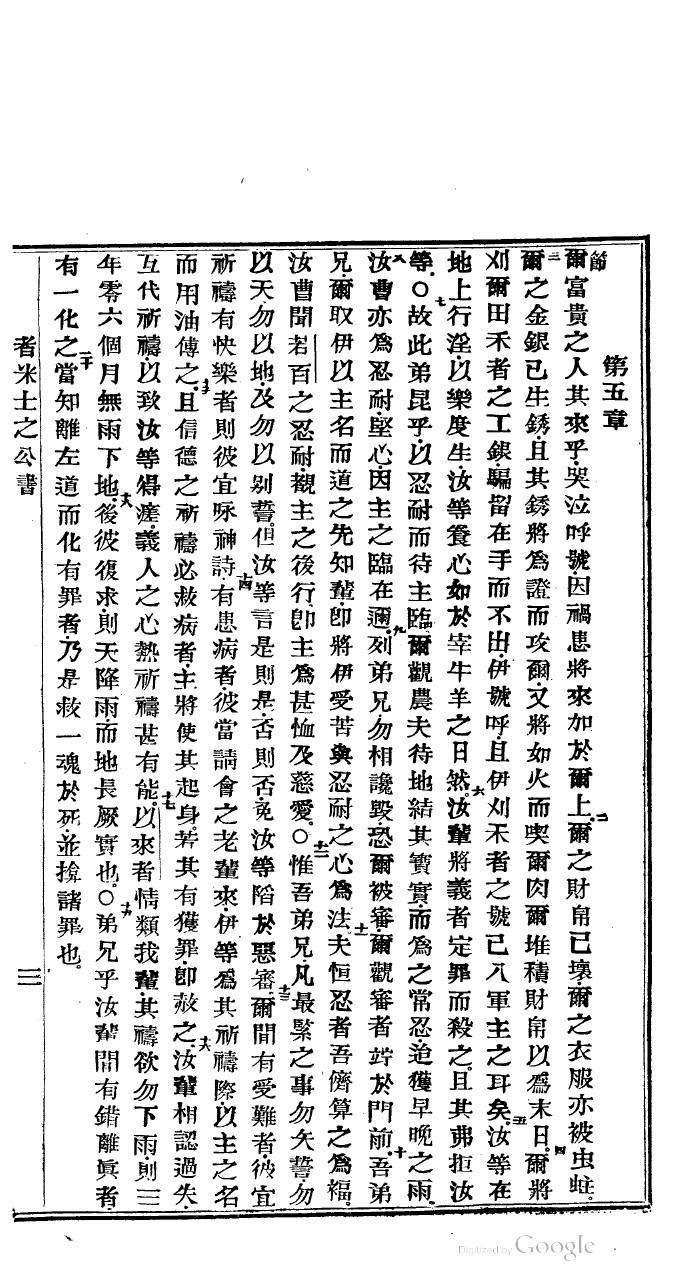 第五章
節
爾富貴之人其來乎哭泣呼號因禍患將來加於爾上爾之財帛已壞爾之衣服亦被虫蛀
爾之金銀已生銹且其銹將為證而攻爾又將如火而喫爾肉爾堆積財帛以為末日爾將
刈爾田禾者之工銀騙留在手而不出伊號呼且伊刈禾者之號已入軍主之耳矣汝等在
地上行淫以樂度生汝等養心如於宰牛羊之日然汝輩將義者定罪而殺之且其弗拒汝
等〇故此弟昆乎以忍耐而待主臨爾觀農夫待地結其寶實而為之常忍迨獲早晚之雨
汝曹亦為忍耐堅心因主之臨在邇列弟兄勿相讒毀恐爾被審爾觀審者竚於門前吾弟
兄爾取伊以主名而道之先知輩卽將伊受苦與忍耐之心為法夫恒忍者吾儕算之為福
汝曹聞若百之忍耐觀主之後行卽主為甚恤及慈愛〇惟吾弟兄凡最緊之事勿矢誓勿
以天勿以地及勿以別誓但汝等言是則是否則否免汝等陷於惡審爾間有受難者彼宜
祈禱有快樂者則彼宜咏神詩有患病者彼當請會之老輩來伊等為其祈禱際以主之名
而用油傅之且信德之祈禱必救病者主將使其起身若其有獲罪卽赦之汝輩相認過失
互代祈禱以致汝等得瘥義人之心熱祈禱甚有能以來者情類我輩其禱欲勿下雨則三
年零六個月無雨下地後彼復求則天降雨而地長厥實也〇弟兄乎汝輩間有錯離真者
有一化之當知離左道而化有罪者乃是救一魂於死並揜諸罪也
者米士之公書
三
二
三
四
五
六
七
八
九
十
十一
十二
十三
十四
十五
十六
十七
十八
十九
二十
Digitized by Google